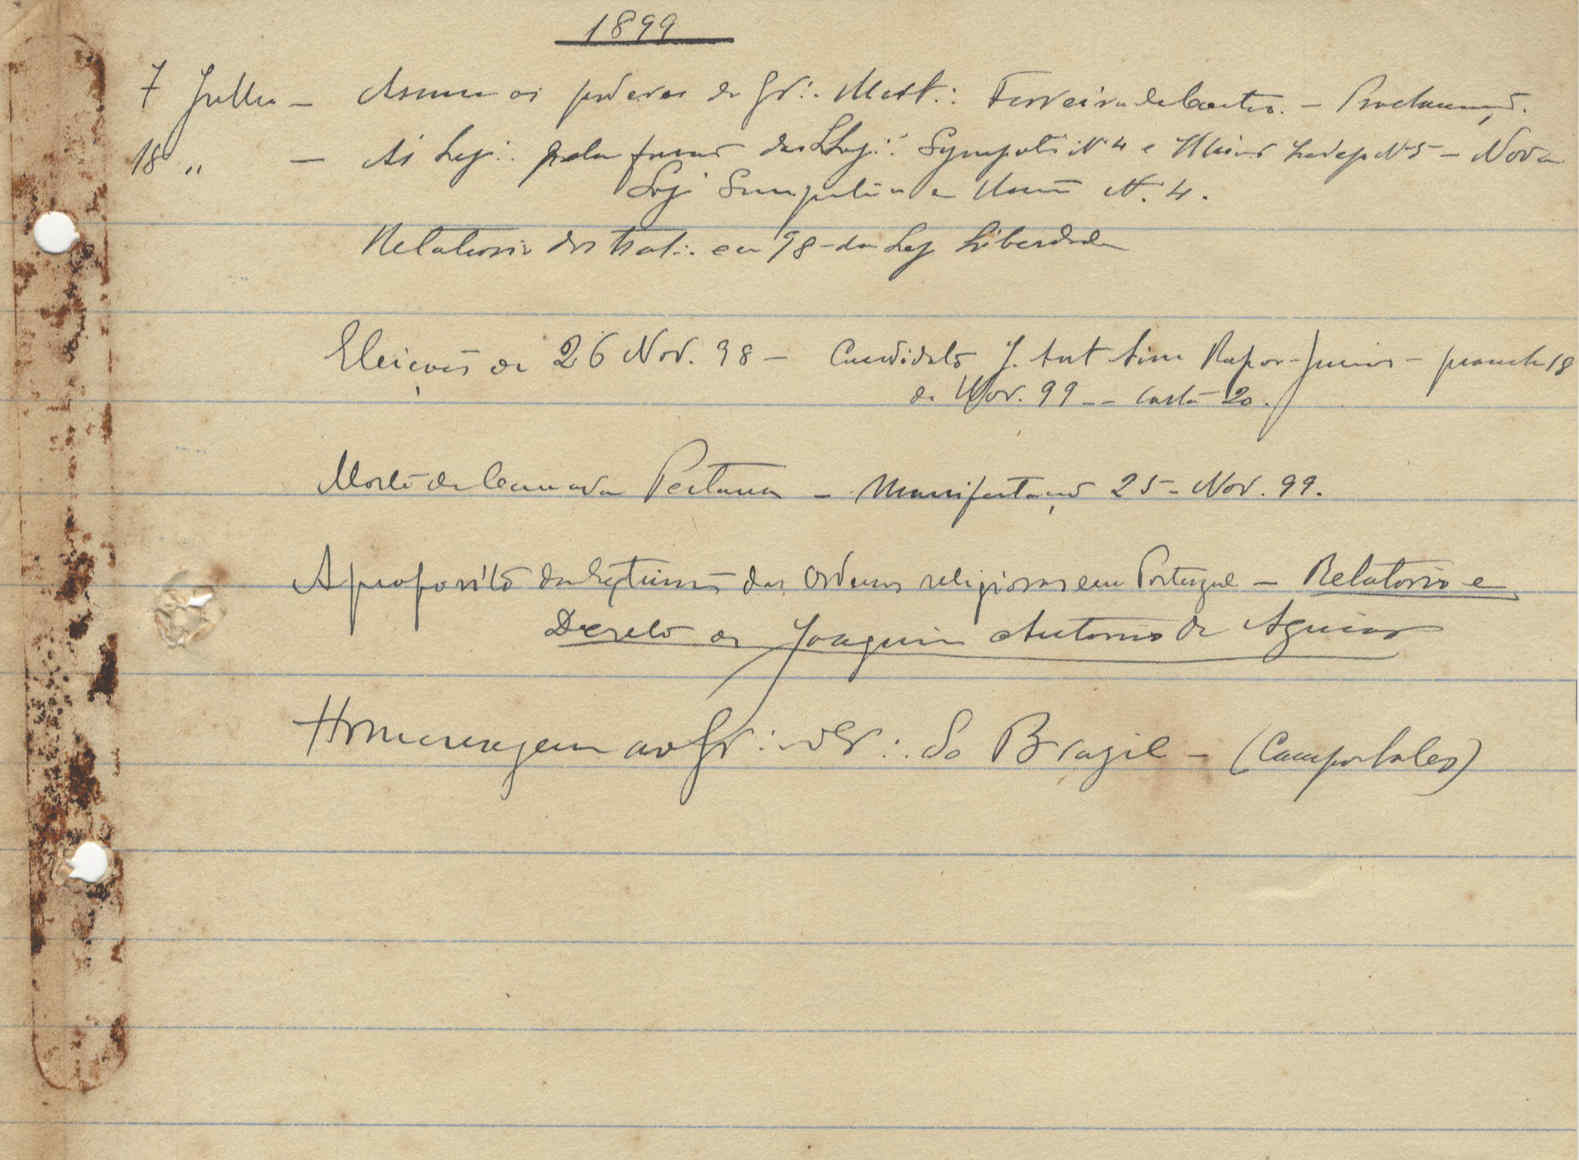 1899
7 Julho – Assume os poderes de Gr∴ Mest∴ Ferreira de Castro. – Proclamação.
18 " – As Loj∴ pela fusão das LLoj∴ Sympatia Nº 4 e União Indep Nº 5 – Nova
Loj Sympatia e União Nº. 4.
Relatorio dos trab∴ em 98 da Loj Liberdade
Eleições de 26 Nov. 98 – Candidato J. Ant Junior – prancha 18
de Nov. 99 –– carta 20.
Morte da Camarada Pestana – Manifestação 25 – Nov. 99.
A proposito da extinção das Ordens religiosas em Portugal – Relatorio e
Decreto de Joaquim Antonio de Aguiar
Homenagem ao Gr∴ Or∴ do Brazil – (Campos Sales)